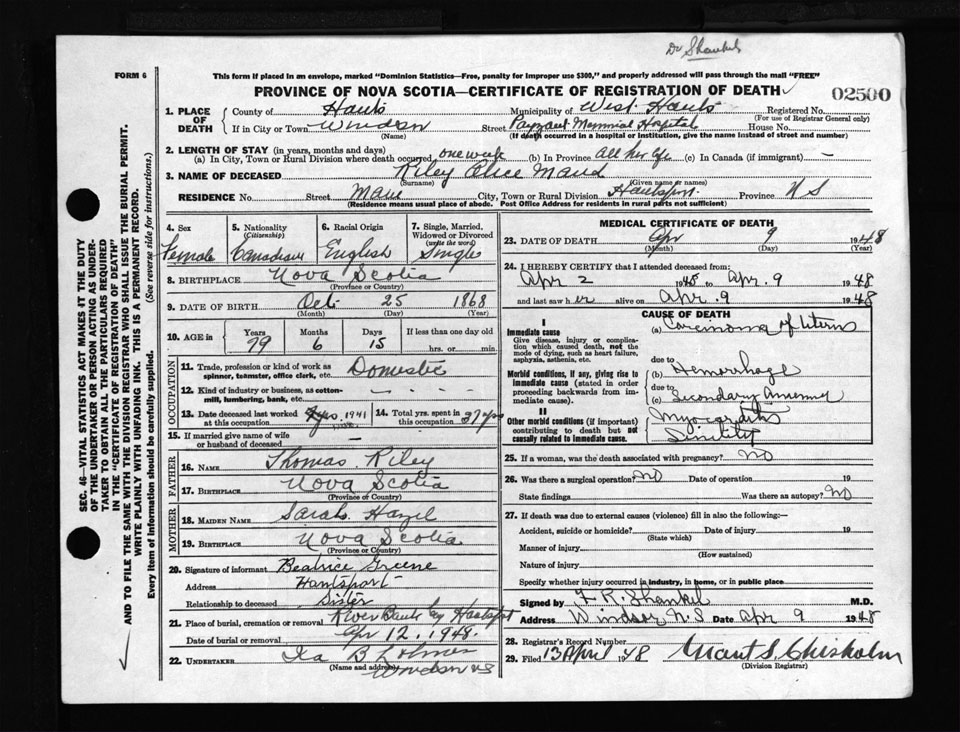 Dr Shankel
FORM 6
This form if placed in an envelope, marked "Dominion Statistics—Free, penalty for improper use $300," and properly addressed will pass through the mail "FREE"
PROVINCE OF NOVA SCOTIA—CERTIFICATE OF REGISTRATION OF DEATH
02500
1. PLACE OF DEATH
County of Hants Municipality of West Hants Registered No.
(For use of Registrar General only)
If in City or Town Windsor Street Payzant Memorial Hospital House No.
(Name) (If death occurred in a hospital or institution, give the name instead of street and number)
2. LENGTH OF STAY (in years, months and days)
(a) In City, Town or Rural Division where death occurred one week (b) In Province all her life (c) In Canada (if immigrant) —
3. NAME OF DECEASED Riley Alice Maud
(Surname) (Given name or names)
RESIDENCE No. Street Main City, Town or Rural Division Hantsport Province N S
(Residence means usual place of abode. Post Office Address for residents in rural parts not sufficient)
4. Sex Female
5. Nationality (Citizenship) Canadian
6. Racial Origin English
7. Single, Married, Widowed or Divorced (write the word) Single
8. BIRTHPLACE Nova Scotia
(Province or Country)
9. DATE OF BIRTH Oct 25 1868
(Month) (Day) (Year)
10. AGE in Years 79 Months 6 Days 15 If less than one day old
hrs. or min.
OCCUPATION
11. Trade, profession or kind of work as spinner, teamster, office clerk, etc. Domestic
12. Kind of industry or business, as cotton-mill, lumbering, bank, etc. — —
13. Date deceased last worked at this occupation 1941
14. Total yrs. spent in this occupation
15. If married give name of wife or husband of deceased —
FATHER
16. NAME Thomas Riley
17. BIRTHPLACE Nova Scotia
(Province or Country)
MOTHER
18. MAIDEN NAME Sarah Hazel
19. BIRTHPLACE Nova Scotia
(Province or Country)
20. Signature of informant Beatrice Greene
Address Hantsport
Relationship to deceased Sister
21. Place of burial, cremation or removal River Bank Hantsport
Date of burial or removal Apr 12, 1948.
22. UNDERTAKER Ira B Lohnes
(Name and address) Windsor NS
MEDICAL CERTIFICATE OF DEATH
23. DATE OF DEATH Apr 9 1948
(Month) (Day) (Year)
24. I HEREBY CERTIFY that I attended deceased from:
Apr 2 1948 to Apr. 9 1948
and last saw her alive on Apr. 9 1948
CAUSE OF DEATH
I
Immediate cause
Give disease, injury or complication which caused death, not the mode of dying, such as heart failure, asphyxia, asthenia, etc.
(a) Carcinoma of Uterus
due to
Morbid conditions, if any, giving rise to immediate cause (stated in order proceeding backwards from immediate cause).
(b) Hemorrhage
due to
(c) Secondary Anaemia
II
Other morbid conditions (if important) contributing to death but not causally related to immediate cause.
Myocarditis
Senility
25. If a woman, was the death associated with pregnancy? NO
26. Was there a surgical operation? NO Date of operation 19
State findings Was there an autopsy? NO
27. If death was due to external causes (violence) fill in also the following:—
Accident, suicide or homicide? Date of injury 19
(State which)
Manner of injury
(How sustained)
Nature of injury
Specify whether injury occurred in industry, in home, or in public place
Signed by F. R. Shankel M.D.
Address Windsor N.S Date Apr 9 1948
28. Registrar's Record Number
29. Filed 13 April 1948 Grant S. Chisholm
(Division Registrar)
SEC. 46—VITAL STATISTICS ACT MAKES IT THE DUTY
OF THE UNDERTAKER OR PERSON ACTING AS UNDER-
TAKER TO OBTAIN ALL THE PARTICULARS REQUIRED
IN THE "CERTIFICATE OF REGISTRATION OF DEATH"
AND TO FILE THE SAME WITH THE DIVISION REGISTRAR WHO SHALL ISSUE THE BURIAL PERMIT.
WRITE PLAINLY WITH UNFADING INK. THIS IS A PERMANENT RECORD.
Every item of Information should be carefully supplied. (See reverse side for instructions.)